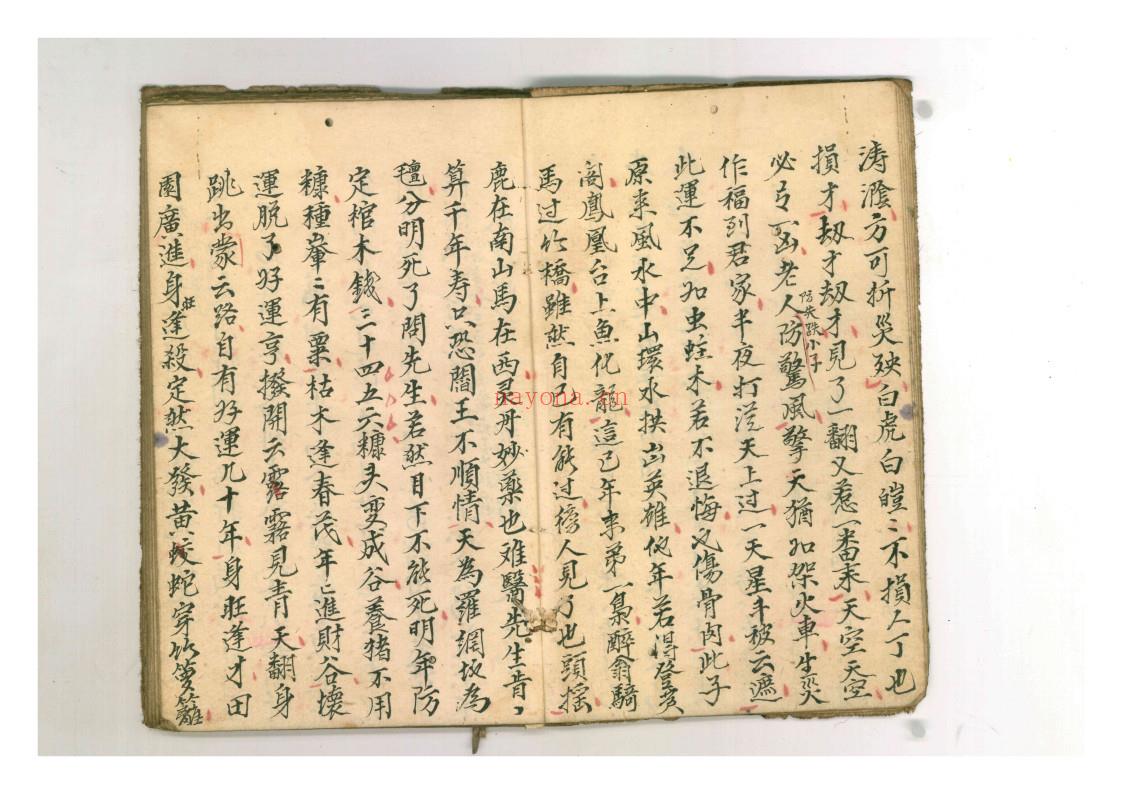 濤潑方可折災殃白虎白皚〻不損人丁也
損才刼才刼才見了一翻又惹一番來天空天空
必弓凶老人防驚風擎天猶如架火車生災
防失跌小子
作福到君家半夜打從天上過一天星斗被云遮
此運不足如虫蛀木若不退悔必傷骨肉此子
原來風水中山環水拱出英雄他年若得登黃
閣鳳凰台上魚化龍這己年來第一梟醉翁騎
馬過竹橋雖然自己有能過傍人見了也頭搖
鹿在南山馬在西灵丹妙藥也难醫先生肯
算千年寿只恐閻王不順情天為羅網坟為
分明死了問先生若然目下不能死明年防
定棺木錢三十四五六糠头变成谷養猪不用
糠種 〻有粟枯木逢春茂年〻進財谷壞
運脫了好運亨撥開云露霧見青天翻身
跳出蒙云路自有好運几十年身旺逢才田
園廣進身旺逢殺定然大發黃蛟蛇穿竹籬
nayona.cn